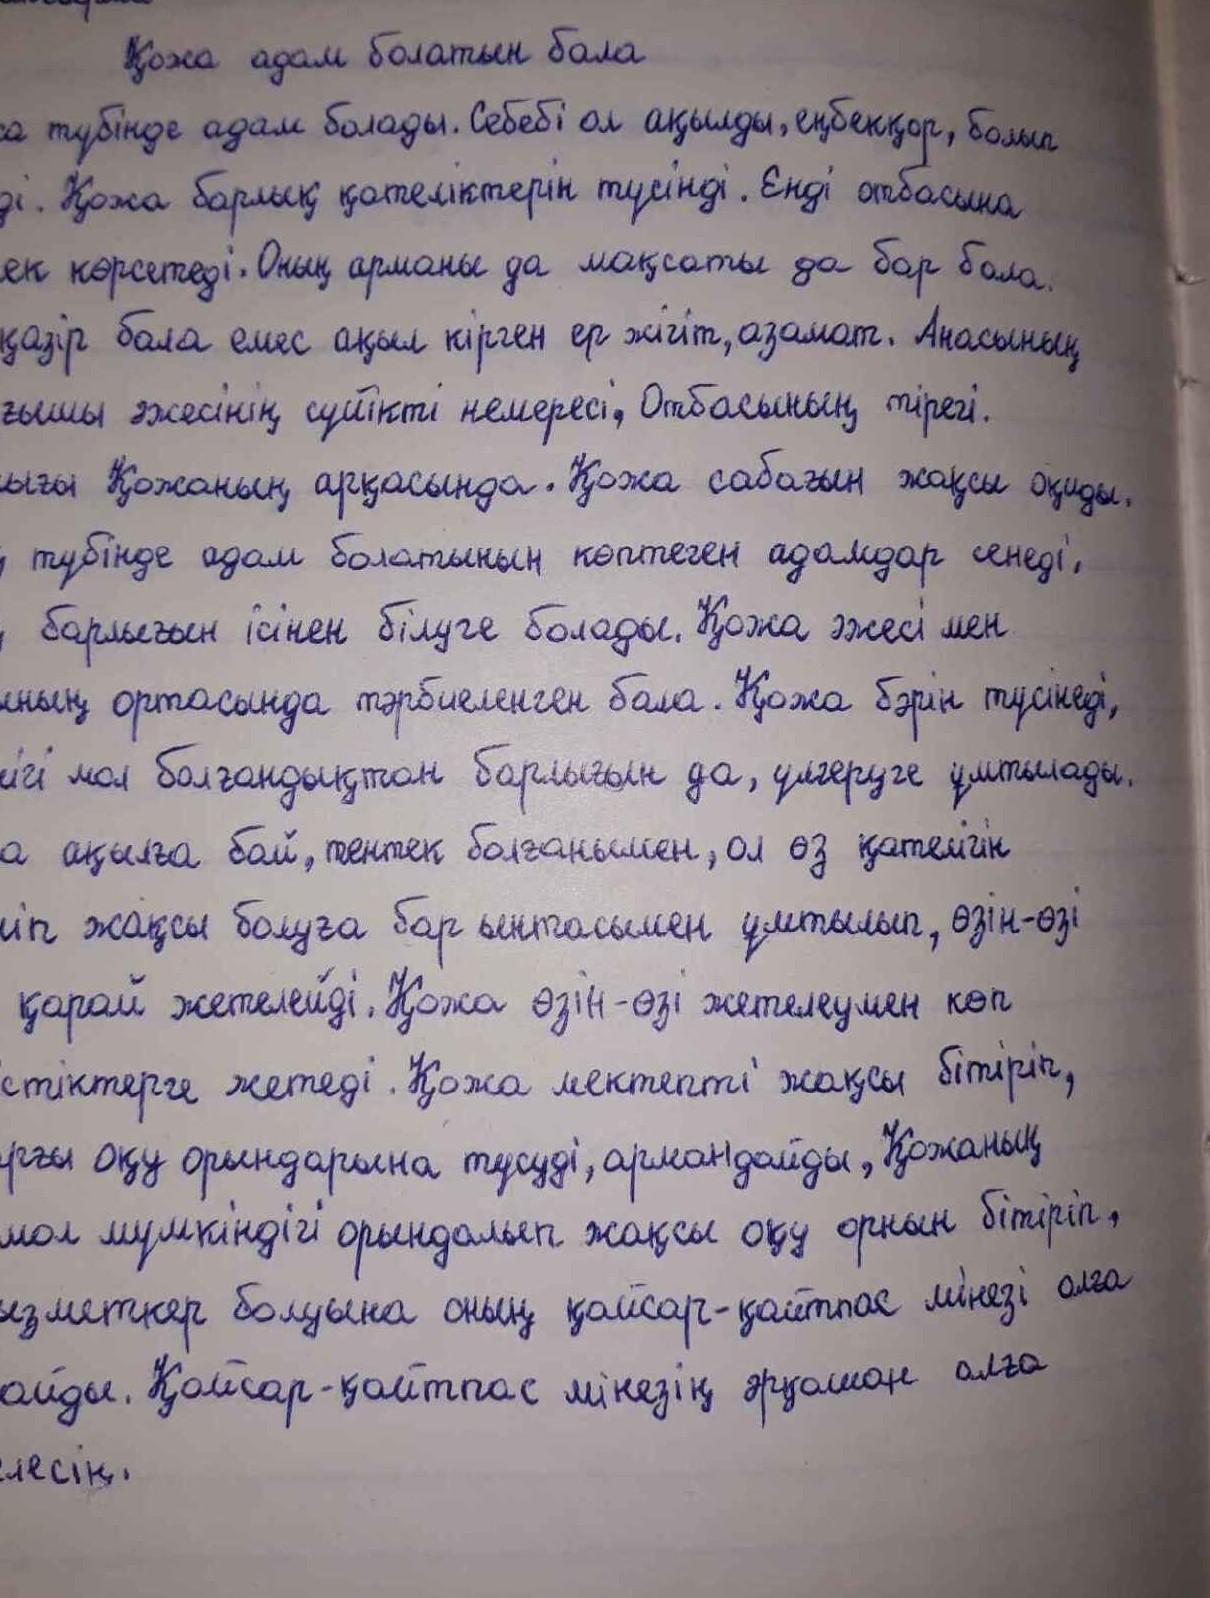 Қожа адам болатын бала
са түбінде адам болады. Себебі ол ақылды, еңбекқор, болып
ді. Қожа барлық қателіктерін түсінді. Енді отбасына
ек көрсетеді. Оның арманы да мақсаты да бар бала.
қазір бала емес ақыл кірген ер жігіт, азамат. Анасының
ғышы әжесінің сүйікті немересі, Отбасының тірегі.
лығы Қожаның арқасында. Қожа сабағын жақсы оқиды.
түбінде адам болатынын көптеген адамдар сенеді,
барлығын ісінен білуге болады. Қожа әжесі мен
ының ортасында тәрбиеленген бала. Қожа бәрін түсінеді,
йігі мол болғандықтан барлығын да, үлгеруге ұмтылады.
а ақылға бай, тентек болғанымен, ол өз қателігін
ніп жақсы болуға бар ынтасымен ұмтылып, өзін-өзі
қарай жетелейді. Қожа өзін-өзі жетелеумен көп
стіктерге жетеді. Қожа мектепті жақсы бітіріп,
арғы оқу орындарына түсуді, армандайды, Қожаның
мол мүмкіндігі орындалып жақсы оқу орнын бітіріп,
ызметкер болуына оның қайсар-қайтпас мінезі алға
айды. Қайсар-қайтпас мінезің әрқашан алға
елесің.